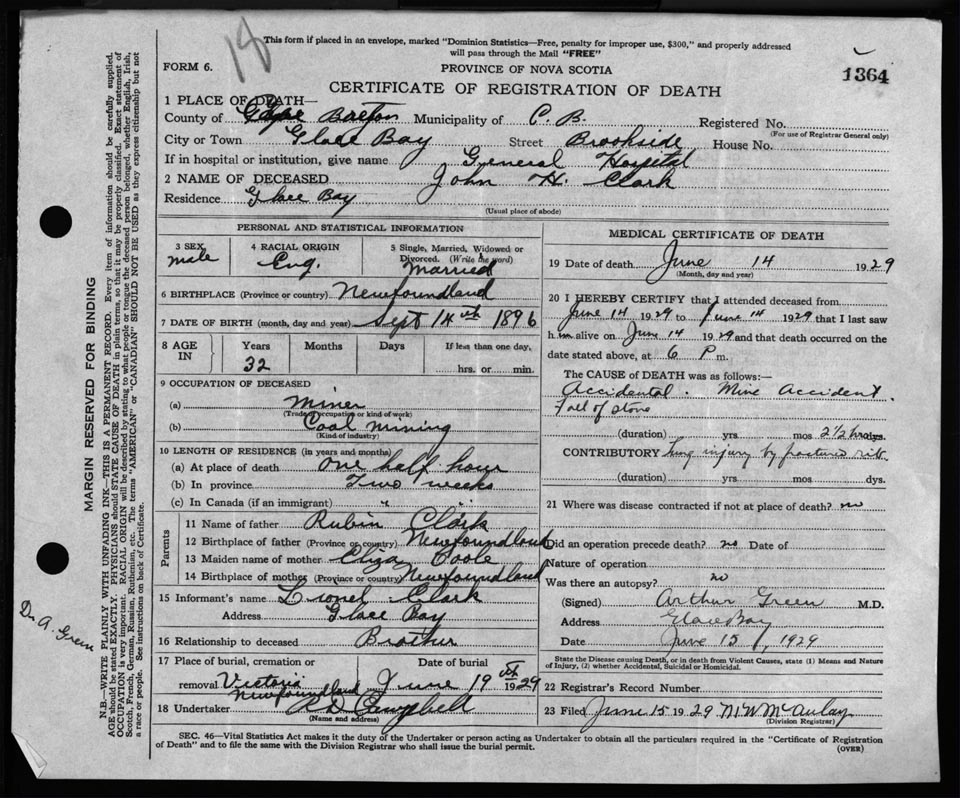 18
This form if placed in an envelope, marked "Dominion Statistics—Free, penalty for improper use, $300," and properly addressed
will pass through the Mail "FREE"
FORM 6.
PROVINCE OF NOVA SCOTIA
1364
CERTIFICATE OF REGISTRATION OF DEATH
1 PLACE OF DEATH—
County of Cape Breton Municipality of C. B. Registered No.
(For use of Registrar General only)
City or Town Glace Bay Street Brookside House No.
If in hospital or institution, give name General Hospital
2 NAME OF DECEASED John H. Clark
Residence Glace Bay
(Usual place of abode)
PERSONAL AND STATISTICAL INFORMATION
3 SEX 4 RACIAL ORIGIN 5 Single, Married, Widowed or
Divorced. (Write the word)
male Eng. Married
6 BIRTHPLACE (Province or country) Newfoundland
7 DATE OF BIRTH (month, day and year) Sept 14th 1896
8 AGE IN Years Months Days If less than one day,
32 hrs. or min.
9 OCCUPATION OF DECEASED
(a) Miner
(Trade, occupation or kind of work)
(b) Coal mining
(Kind of industry)
10 LENGTH OF RESIDENCE (in years and months)
(a) At place of death one half hour
(b) In province Two weeks
(c) In Canada (if an immigrant) " "
Parents
11 Name of father Rubin Clark
12 Birthplace of father (Province or country) Newfoundland
13 Maiden name of mother Eliza Poole
14 Birthplace of mother (Province or country) Newfoundland
15 Informant's name Lionel Clark
Address Glace Bay
16 Relationship to deceased Brother
17 Place of burial, cremation or Date of burial
removal Victoria Newfoundland June 19th 1929
18 Undertaker A D Campbell
(Name and address)
MEDICAL CERTIFICATE OF DEATH
19 Date of death June 14 1929
(Month, day and year)
20 I HEREBY CERTIFY that I attended deceased from
June 14 1929 to June 14 1929 that I last saw
h im alive on June 14 1929 and that death occurred on the
date stated above, at 6 P m.
The CAUSE OF DEATH was as follows:—
Accidental. Mine Accident.
Fall of stone
(duration) yrs mos 2½ hrs dys.
CONTRIBUTORY lung injury by fractured rib.
(duration) yrs. mos dys.
21 Where was disease contracted if not at place of death? no
Did an operation precede death? no Date of
Nature of operation
Was there an autopsy? no
(Signed) Arthur Green M.D.
Address Glace Bay
Date June 15, 1929
State the Disease causing Death, or in death from Violent Causes, state (1) Means and Nature
of Injury, (2) whether Accidental, Suicidal or Homicidal.
22 Registrar's Record Number
23 Filed June 15 1929 McAulay
(Division Registrar)
SEC. 46—Vital Statistics Act makes it the duty of the Undertaker or person acting as Undertaker to obtain all the particulars required in the "Certificate of Registration
of Death" and to file the same with the Division Registrar who shall issue the burial permit.
(OVER)
MARGIN RESERVED FOR BINDING
N.B. WRITE PLAINLY WITH UNFADING INK—THIS IS A PERMANENT RECORD. Every item of information should be carefully supplied.
AGE should be stated EXACTLY. PHYSICIANS should STATE CAUSE OF DEATH in plain terms, so that it may be properly classified. Exact statement of
OCCUPATION is very important. RACIAL ORIGIN will be described by stating to what people or tongue the deceased person belonged, whether English, Irish,
Scotch, French, German, Russian, Ruthenian, etc. The terms "AMERICAN" or "CANADIAN" SHOULD NOT BE USED as they express citizenship but not
a race or people. See instructions on back of Certificate.
Dr A. Green